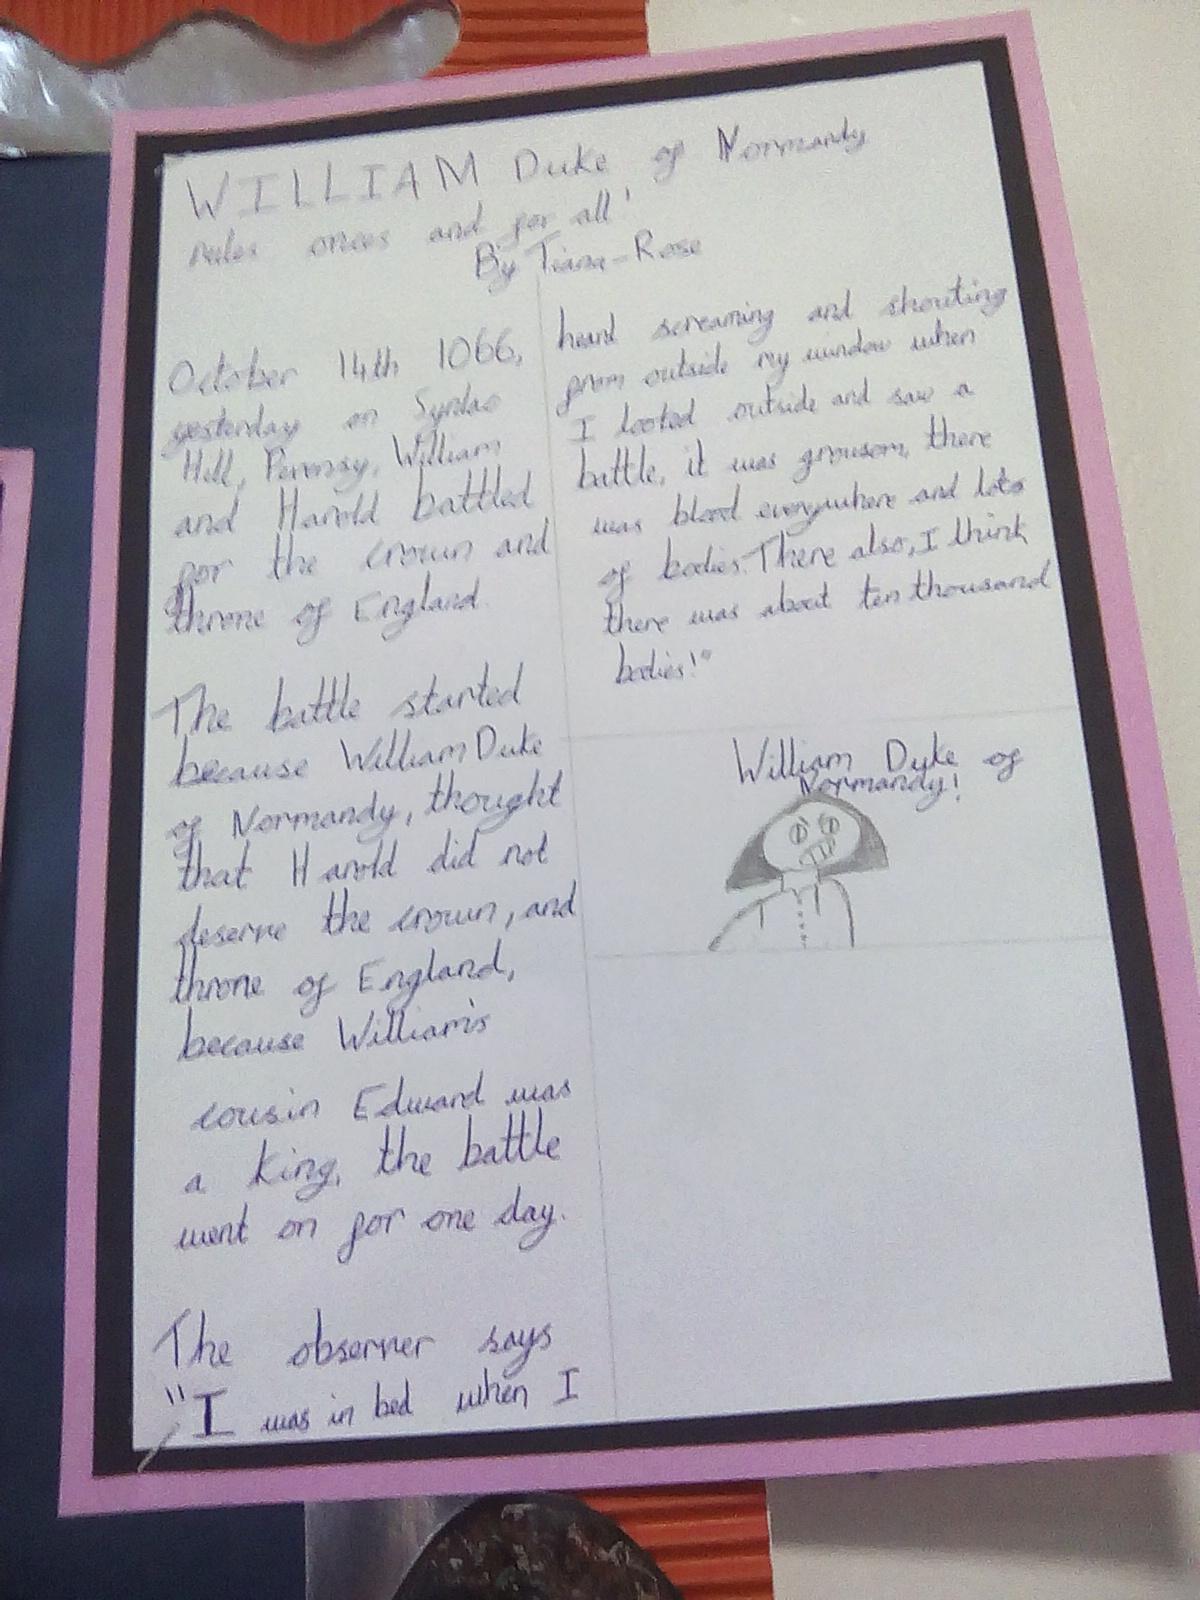 WILLIAM Duke of Normandy
rules onces and for all!
By Tiana-Rose
October 14th 1066,
yesterday on Synlac
Hill, Pevensy, William
and Harold battled
for the crown and
throne of England.
The battle started
because William Duke
of Normandy, thought
that Harold did not
deserve the crown, and
throne of England,
because William's
cousin Edward was
a king, the battle
went on for one day.
The observer says
"I was in bed when I
heard screaming and shouting
from outside my window when
I looted outside and saw a
battle, it was grousom, there
was blood everywhere and lots
of bodies. There also, I think
there was about ten thousand
bodies!"
William Duke of
Normandy!